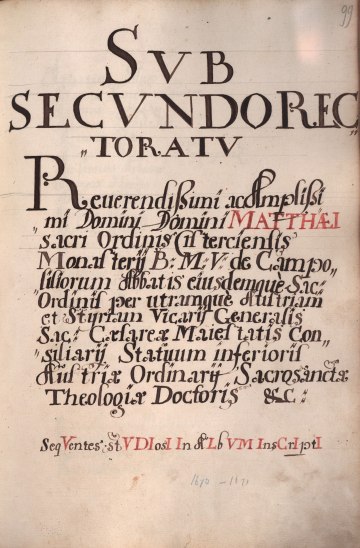 99
SVB
SECVNDO REC
„TORATV
Reverendissimi ac Amplissi
„mi Domini Domini MATTHÆI
sacri Ordinis Cisterciensis
Monasterij B: M: V: de Campo
„liliorum Abbatis eiusdemque Sac:
Ordinis per utramque Austriam
et Styriam Vicarij Generalis
Sac: Cæsareæ Maiestatis Con
„siliarij Statuum inferioris
Austriæ Ordinarij Sacrosanctæ
Theologiæ Doctoris &c:
SeqVentes stVDIosI In ALbVM InsCrIptI